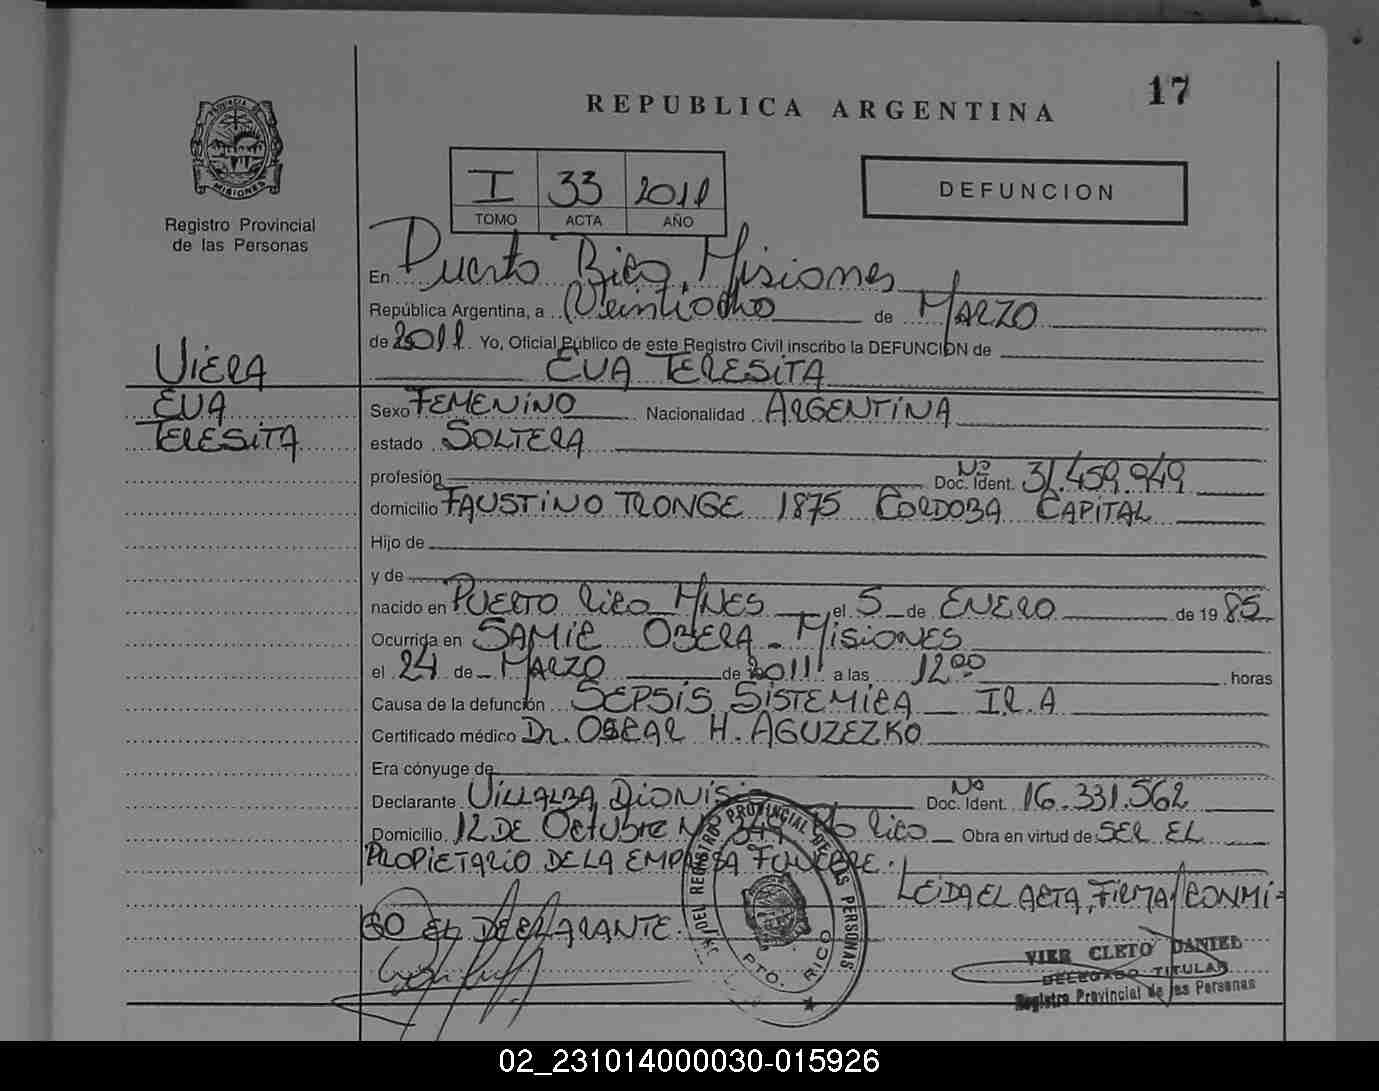 17
REPUBLICA ARGENTINA
PROVINCIA DE
MISIONES
Registro Provincial
de las Personas
I 33 2011
TOMO ACTA AÑO
DEFUNCION
En Puerto Rico, Misiones
República Argentina, a Veintiocho de MARZO
de 2011 Yo, Oficial Público de este Registro Civil inscribo la DEFUNCION de
VIERA EVA TERESITA
EVA TERESITA
Sexo FEMENINO Nacionalidad ARGENTINA
estado SOLTERA
profesión Nº Doc. Ident. 31.459.949
domicilio FAUSTINO TRONGE 1875 CORDOBA CAPITAL
Hijo de
y de
nacido en PUERTO RICO MNES el 5 de ENERO de 1985
Ocurrida en SAMIC OBERA - MISIONES
el 24 de MARZO de 2011 a las 12 00 horas
Causa de la defunción SEPSIS SISTEMICA - I.R.A
Certificado médico Dr. OSCAR H. AGUZEZKO
Era cónyuge de
Declarante VILLALBA DIONISIO Nº Doc. Ident. 16.331.562
Domicilio 12 DE Octubre Nº 349 Pto Rico Obra en virtud de SER EL
PROPIETARIO DE LA EMPRESA FUNEBRE.
LEIDA EL ACTA, FIRMA CONMI=
GO EL DECLARANTE.
DEL REGISTRO PROVINCIAL DE LAS PERSONAS
PTO. RICO
VIER CLETO DANIEL
DELEGADO TITULAR
Registro Provincial de las Personas
02_231014000030-015926